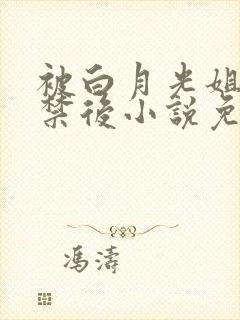 被白月光姐
禁後小說免
馮濤